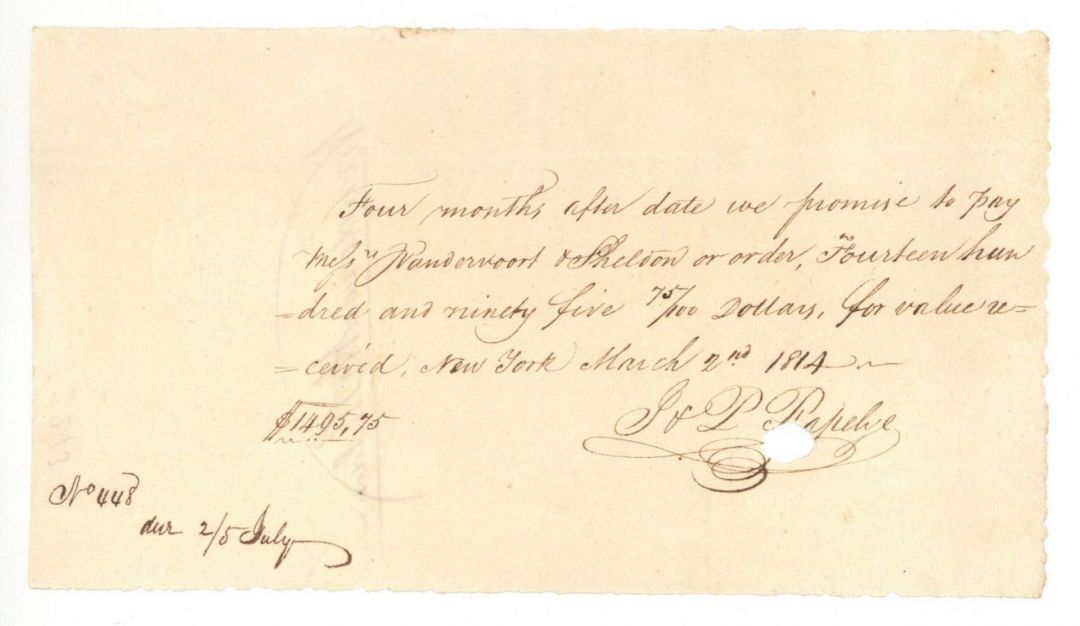 Four months after date we promise to pay
Messrs Vandervoort & Sheldon or order, Fourteen hun
=dred and ninety five 75/100 Dollars, for value re=
=ceiv'd, New York March 2nd 1814
$1495,75
J & P
No 448
due 2/5 July